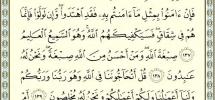 فَإِنْ ءَامَنُوا۟ بِمِثْلِ مَآ ءَامَنتُم بِهِۦ فَقَدِ ٱهْتَدَوا۟ وَّإِن تَوَلَّوْا۟ فَإِنَّمَا
هُمْ فِى شِقَاقٍ فَسَيَكْفِيكَهُمُ ٱللَّهُ وَهُوَ ٱلسَّمِيعُ ٱلْعَلِيمُ
١٣٧ صِبْغَةَ ٱللَّهِ وَمَنْ أَحْسَنُ مِنَ ٱللَّهِ صِبْغَةً وَنَحْنُ لَهُۥ
عَـٰبِدُونَ ١٣٨ قُلْ أَتُحَآجُّونَنَا فِى ٱللَّهِ وَهُوَ رَبُّنَا وَرَبُّكُمْ
وَلَنَآ أَعْمَـٰلُنَا وَلَكُمْ أَعْمَـٰلُكُمْ وَنَحْنُ لَهُۥ مُخْلِصُونَ ١٣٩